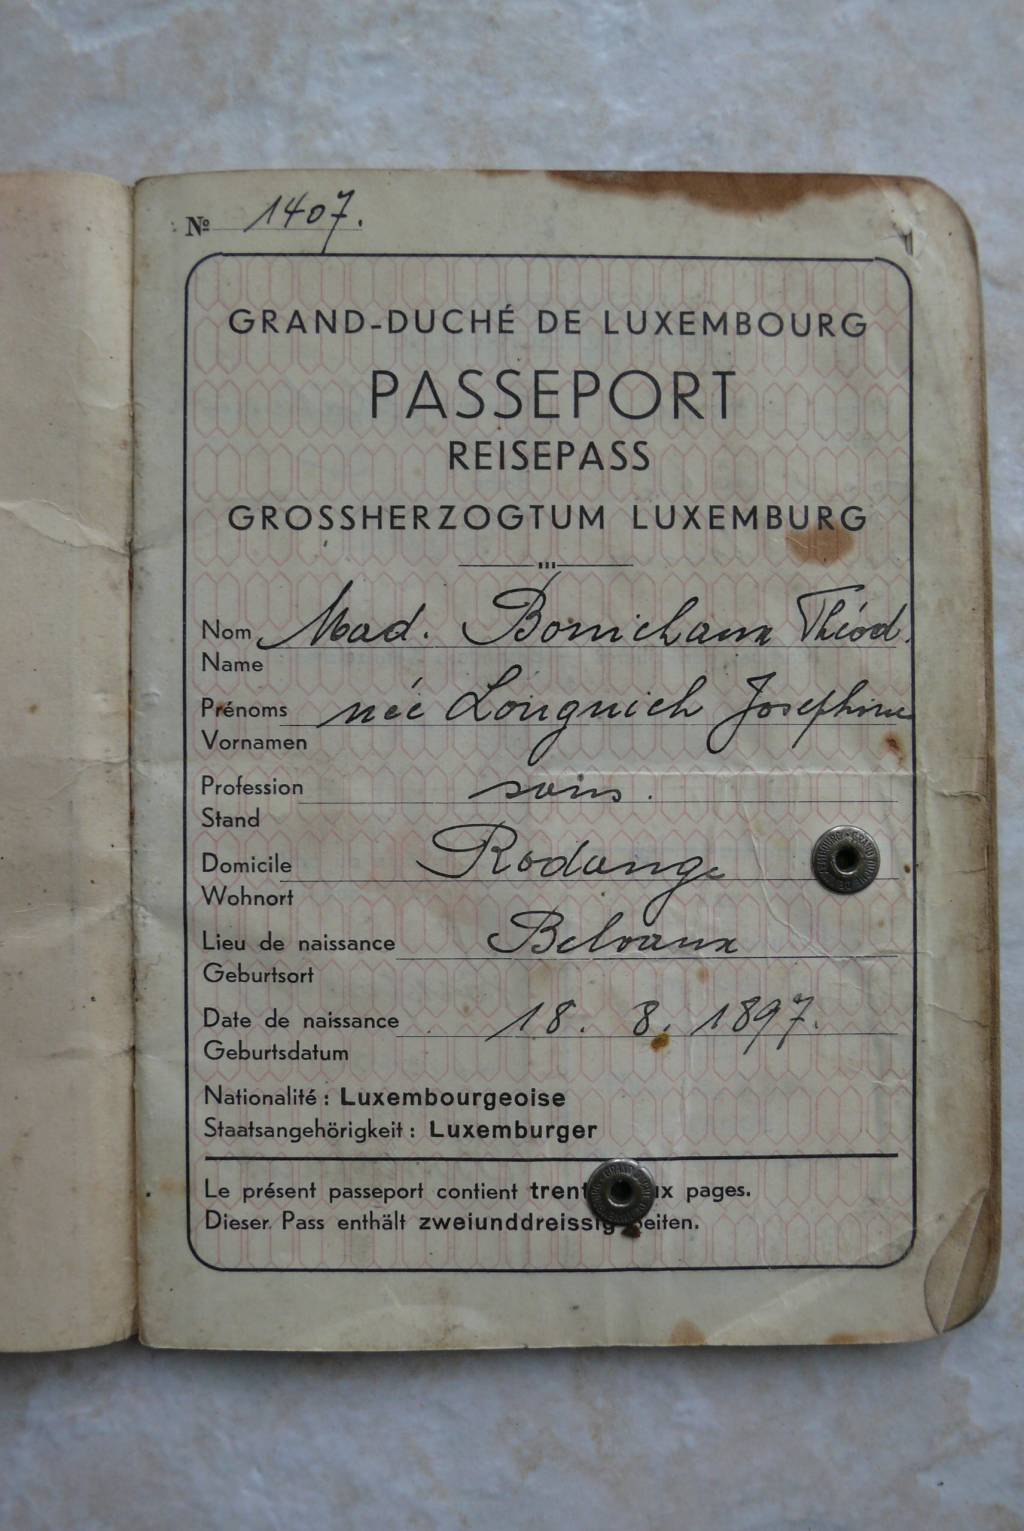 Nº 1407.
GRAND-DUCHÉ DE LUXEMBOURG
PASSEPORT
REISEPASS
GROSSHERZOGTUM LUXEMBURG
Nom Mad. Bonichaux Théod.
Name
Prénoms née Longuich Josephine
Vornamen
Profession sans.
Stand
Domicile Rodange
Wohnort
Lieu de naissance Belvaux
Geburtsort
Date de naissance 18. 8. 1897.
Geburtsdatum
Nationalité : Luxembourgeoise
Staatsangehörigkeit : Luxemburger
Le présent passeport contient trent ux pages.
Dieser Pass enthält zweiunddreissig Seiten.